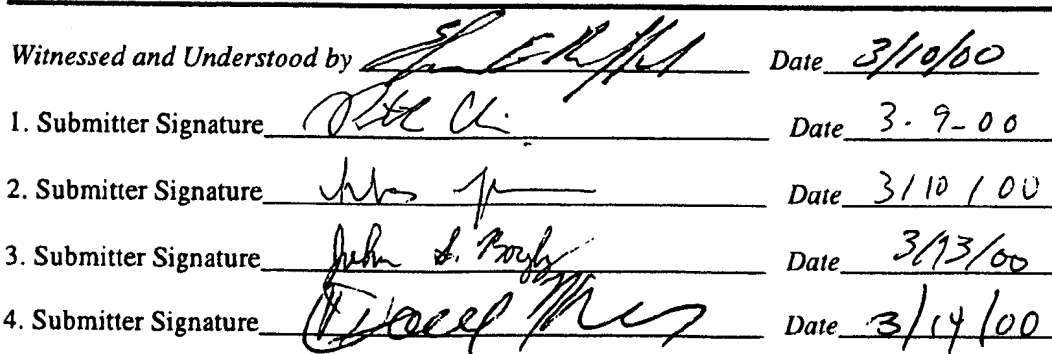 Witnessed and Understood by Date 3/10/00
1. Submitter Signature Date 3. 9-00
2. Submitter Signature Date 3/10/00
3. Submitter Signature John S. Date 3/13/00
4. Submitter Signature Date 3/14/00